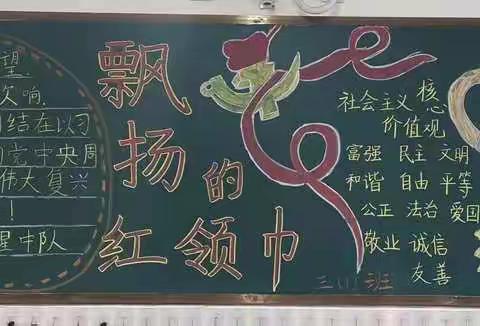 望
次响
结在以习
党中央周
伟大复兴
！
星中队
飘
扬的
红领巾
社会主义核心
价值观
富强 民主 文明
和谐 自由 平等
公正 法治 爱国
敬业 诚信
友善
三(1)班